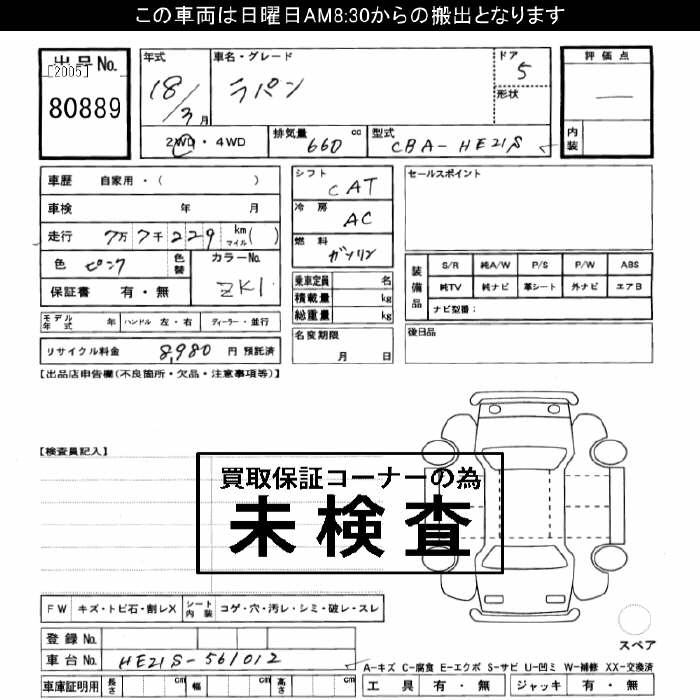 この車両は日曜日AM8:30からの搬出となります
出品No.
[2005]
80889
年式
18/3月
車名・グレード
ラパン
ドア
5
形状
2WD・4WD
排気量
660 cc
型式
CBA-HE21S
評価点
―
内装
車歴 自家用・( )
車検 年 月
走行 7万7千229 km マイル( )
色 ピンク
色替
カラーNo.
ZK1
保証書 有・無
モデル年式 年 ハンドル 左・右 ディーラー・並行
リサイクル料金 8,980 円 預託済
シフト
CAT
冷房
AC
燃料
ガソリン
乗車定員 名
積載量 kg
総重量 kg
名変期限
月 日
セールスポイント
装備品
S/R 純A/W P/S P/W ABS
純TV 純ナビ 革シート 外ナビ エアB
ナビ型番:
後日品
【出品店申告欄(不良箇所・欠品・注意事項等)】
【検査員記入】
買取保証コーナーの為
未検査
FW キズ・トビ石・割レX シート内装 コゲ・穴・汚レ・シミ・破レ・スレ
登録No.
車台No. HE21S-561012
車庫証明用 長さ cm 幅 cm 高さ cm
スペア
A-キズ C-腐食 E-エクボ S-サビ U-凹ミ W-補修 XX-交換済
工具 有・無 ジャッキ 有・無